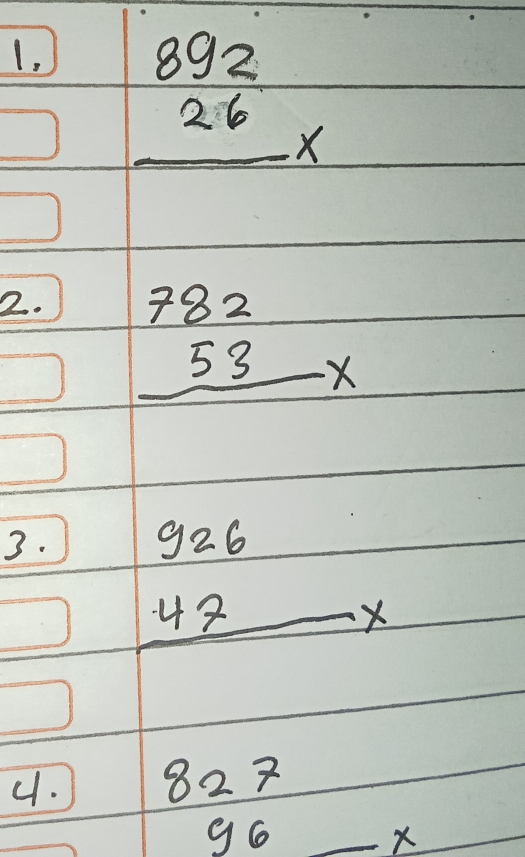 1. 892
26
x
2. 782
53
x
3. 926
47
x
4. 827
96
x